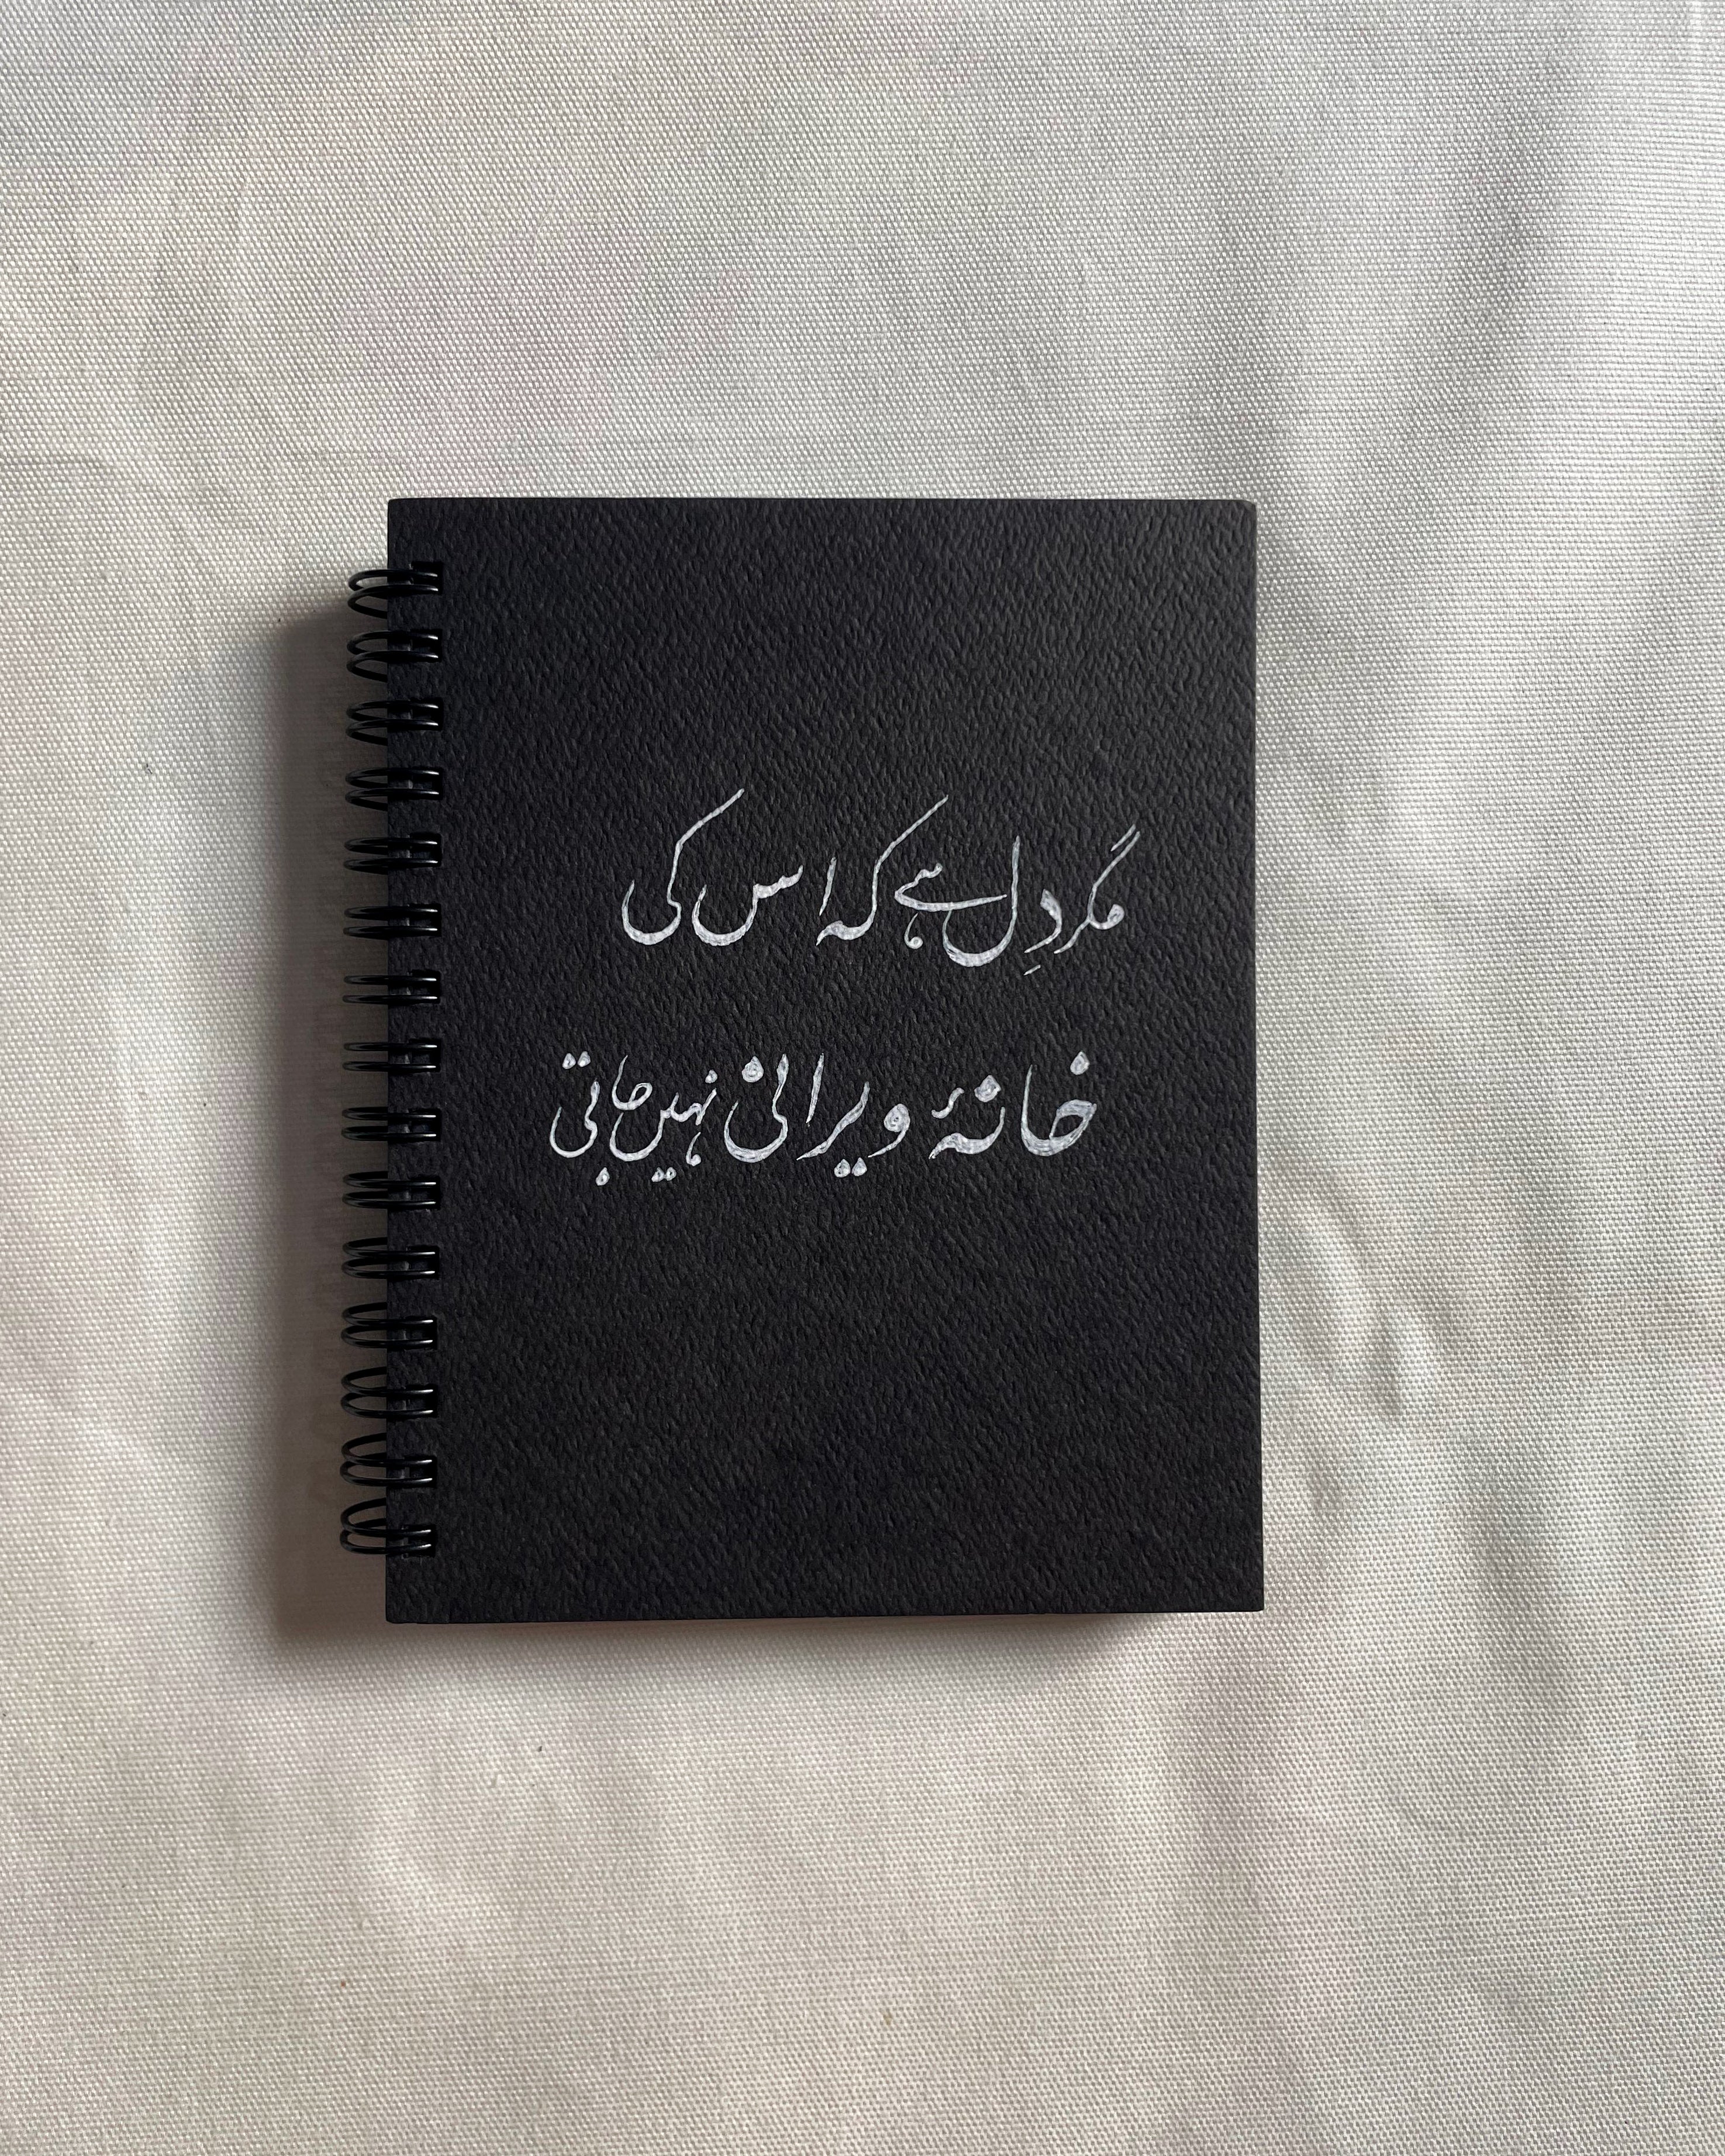 مگر دِل ہے کہ اس کی
خانۂ ویرانی نہیں جاتی